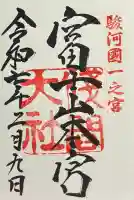 駿河國一之宮
富士山本宮
淺間大社
令和七年二月九日